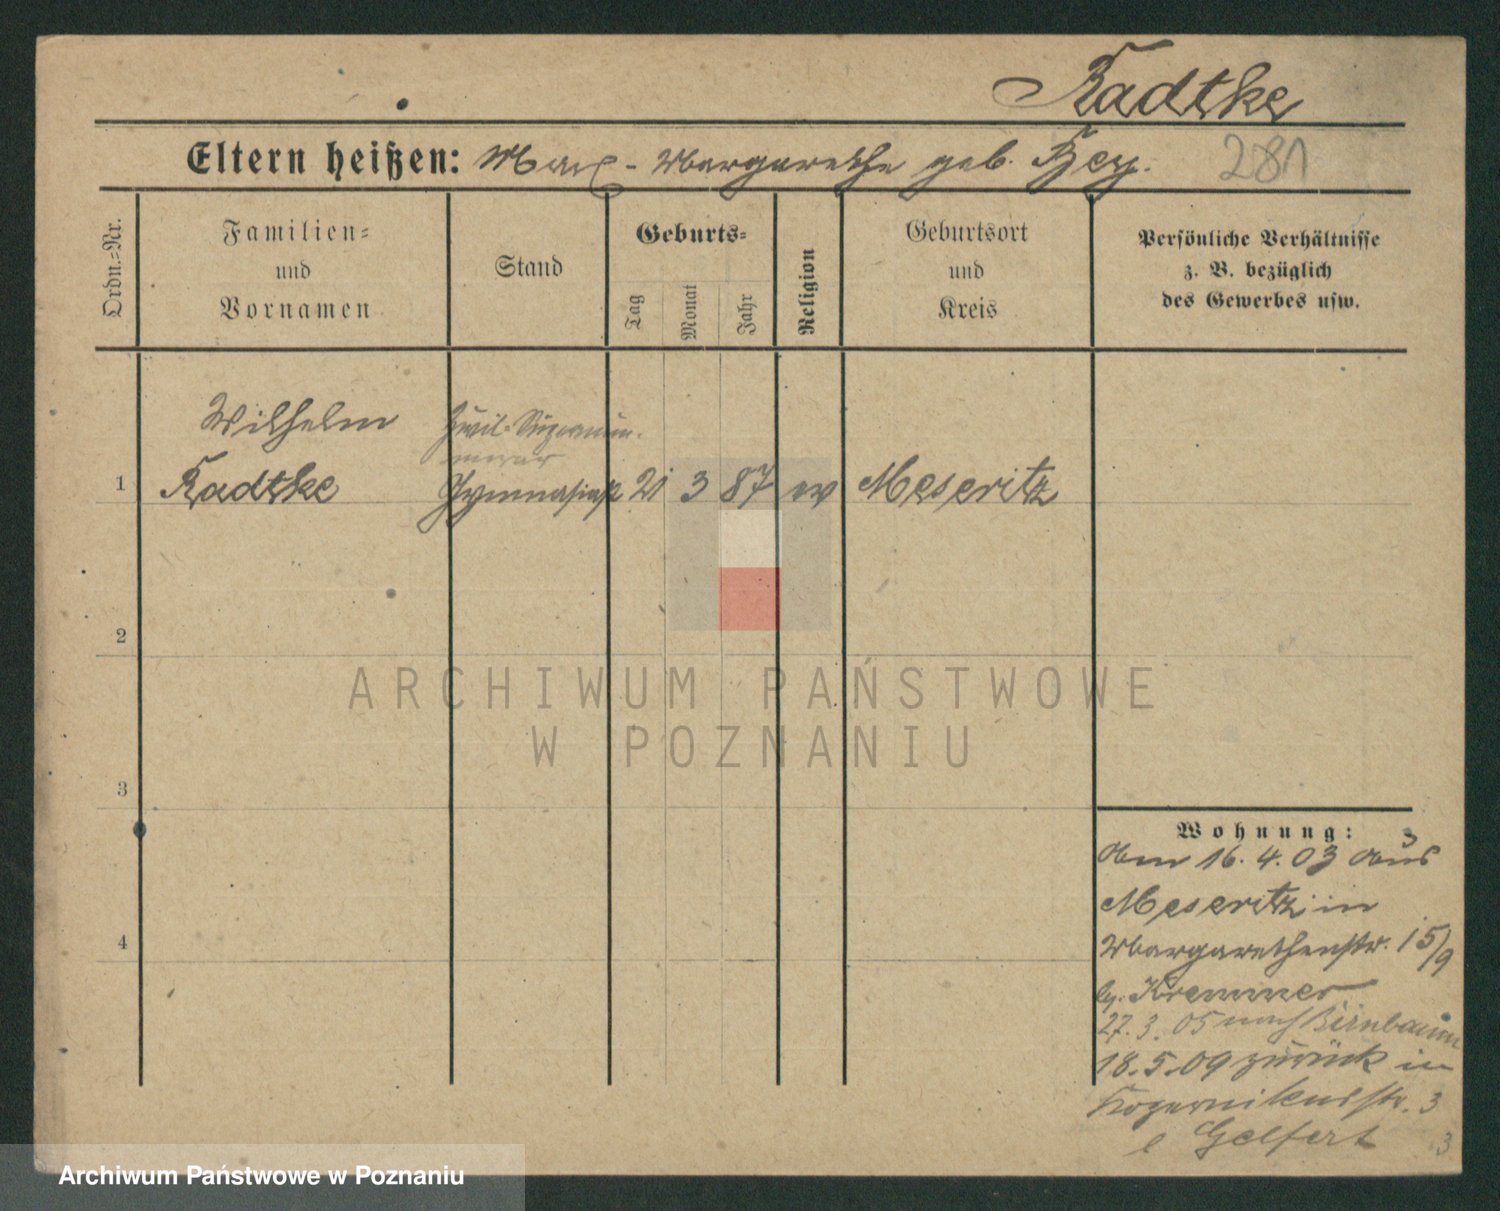 Radtke
Eltern heißen: Max - Margarethe geb. Bey. 281
Ordn.-Nr.
Familien- und Vornamen
Stand
Geburts-
Tag
Monat
Jahr
Religion
Geburtsort und Kreis
Persönliche Verhältnisse
z. B. bezüglich
des Gewerbes usw.
Wilhelm
Zivil-Supernum-
merar
1 Radtke Gymnasiast 21 3 87 ev Meseritz
2
3
4
Wohnung:
Am 16.4.03 aus
Meseritz in
Margarethenstr. 15/9
by. Kremmer
27.3.05 nach Birnbaum
18.5.09 zurück in
Kopernikusstr. 3
Gelfert 3
ARCHIWUM PAŃSTWOWE
W POZNANIU
Archiwum Państwowe w Poznaniu